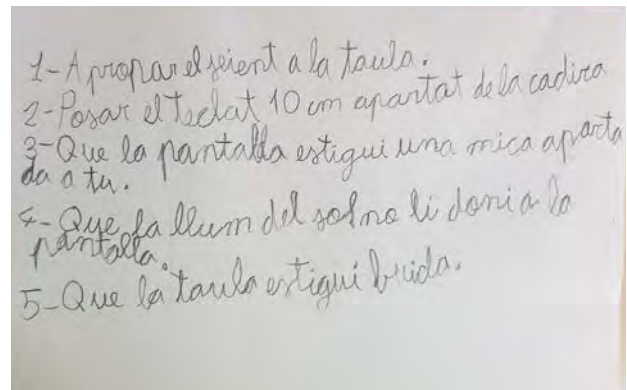 1-Apropar el seient a la taula.
2-Posar el teclat 10 cm apartat de la cadira
3-Que la pantalla estigui una mica aparta
da a tu.
4-Que la llum del sol no li doni a la
pantalla.
5-Que la taula estigui buida.